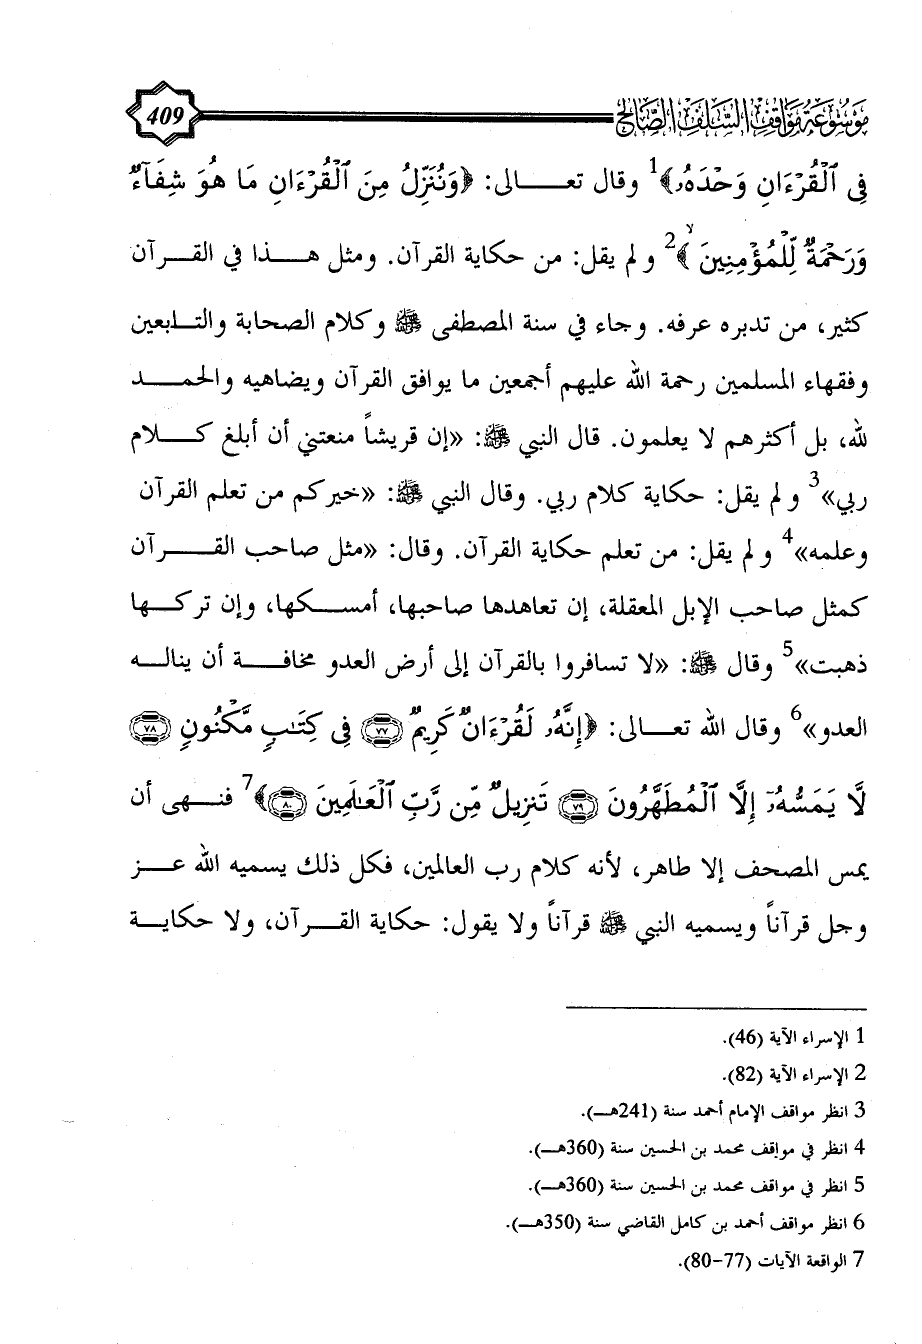 موسوعة مواقف السلف الصالح 409
فِي ٱلْقُرْءَانِ وَحْدَهُۥ﴾1 وقال تعـــالى: ﴿وَنُنَزِّلُ مِنَ ٱلْقُرْءَانِ مَا هُوَ شِفَآءٌ
وَرَحْمَةٌ لِّلْمُؤْمِنِينَ ۙ﴾2 ولم يقل: من حكاية القرآن. ومثل هـــذا في القـــرآن
كثير، من تدبره عرفه. وجاء في سنة المصطفى ﷺ وكلام الصحابة والتـابعين
وفقهاء المسلمين رحمة الله عليهم أجمعين ما يوافق القرآن ويضاهيه والحمـــد
لله، بل أكثرهم لا يعلمون. قال النبي ﷺ: «إن قريشاً منعتني أن أبلغ كـــلام
ربي»3 ولم يقل: حكاية كلام ربي. وقال النبي ﷺ: «خيركم من تعلم القرآن
وعلمه»4 ولم يقل: من تعلم حكاية القرآن. وقال: «مثل صاحب القـــرآن
كمثل صاحب الإبل المعقلة، إن تعاهدها صاحبها، أمســكها، وإن تركـــها
ذهبت»5 وقال ﷺ: «لا تسافروا بالقرآن إلى أرض العدو مخافـــة أن ينالـــه
العدو»6 وقال الله تعـــالى: ﴿إِنَّهُۥ لَقُرْءَانٌ كَرِيمٌ ٧٧ فِي كِتَٰبٍ مَّكْنُونٍ ٧٨
لَّا يَمَسُّهُۥٓ إِلَّا ٱلْمُطَهَّرُونَ ٧٩ تَنزِيلٌ مِّن رَّبِّ ٱلْعَٰلَمِينَ ٨٠﴾7 فنـــهى أن
يمس المصحف إلا طاهر، لأنه كلام رب العالمين، فكل ذلك يسميه الله عـــز
وجل قرآناً ويسميه النبي ﷺ قرآناً ولا يقول: حكاية القـــرآن، ولا حكايـــة
1 الإسراء الآية (46).
2 الإسراء الآية (82).
3 انظر مواقف الإمام أحمد سنة (241هـــ).
4 انظر في مواقف محمد بن الحسين سنة (360هـــ).
5 انظر في مواقف محمد بن الحسين سنة (360هـــ).
6 انظر مواقف أحمد بن كامل القاضي سنة (350هـــ).
7 الواقعة الآيات (77-80).